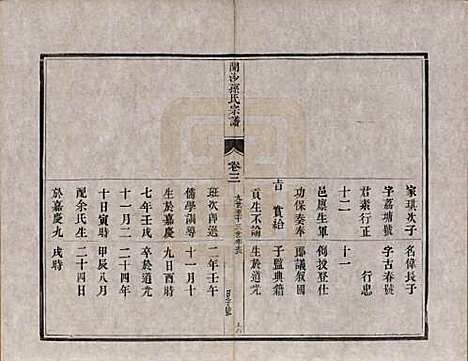 家琪次子
字荔塘號
君素行正
十二
邑廩生軍
功保奏奉
旨賞給
貢生不論
名偉長子
字古春號
行忠
十一
例授登仕
郎議叙國
子監典籍
生於道光
開沙孫氏宗譜
卷三
班次再選
儒學訓導
生於嘉慶
七年壬戌
十一月二
十日寅時
配余氏生
於嘉慶九
二年壬午
十一月十
九日酉時
卒於道光
二十四年
甲辰八月
二十四日
戌時